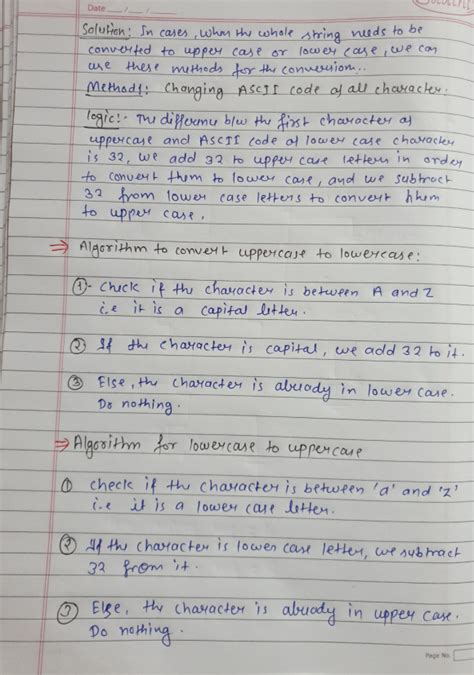 Date __/__/__
Solution: In cases, when the whole string needs to be
converted to upper case or lower case, we can
use these methods for the conversion..
Method1: Changing ASCII code of all character.
Logic:- The difference b/w the first character of
uppercase and ASCII code of lower case character
is 32, we add 32 to upper case letters in order
to convert them to lower case, and we subtract
32 from lower case letters to convert them
to upper case.
⇒ Algorithm to convert uppercase to lowercase:
①- Check if the character is between A and Z
i.e it is a capital letter.
② If the character is capital, we add 32 to it.
③ Else, the character is already in lower case.
Do nothing.
⇒ Algorithm for lowercase to uppercase
① check if the character is between 'a' and 'z'
i.e it is a lower case letter.
② If the character is lower case letter, we subtract
32 from it.
③ Else, the character is already in upper case.
Do nothing.
Page No.